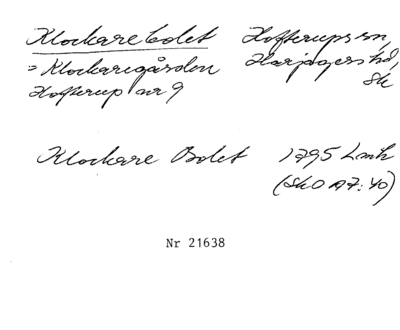 Klockarebolet Hofterups sn,
= Klockaregården Harjagers hd,
Hofterup nr 9 Sk
Klockare Bolet 1795 Lmh
(Sk O A7:40)
Nr 21638